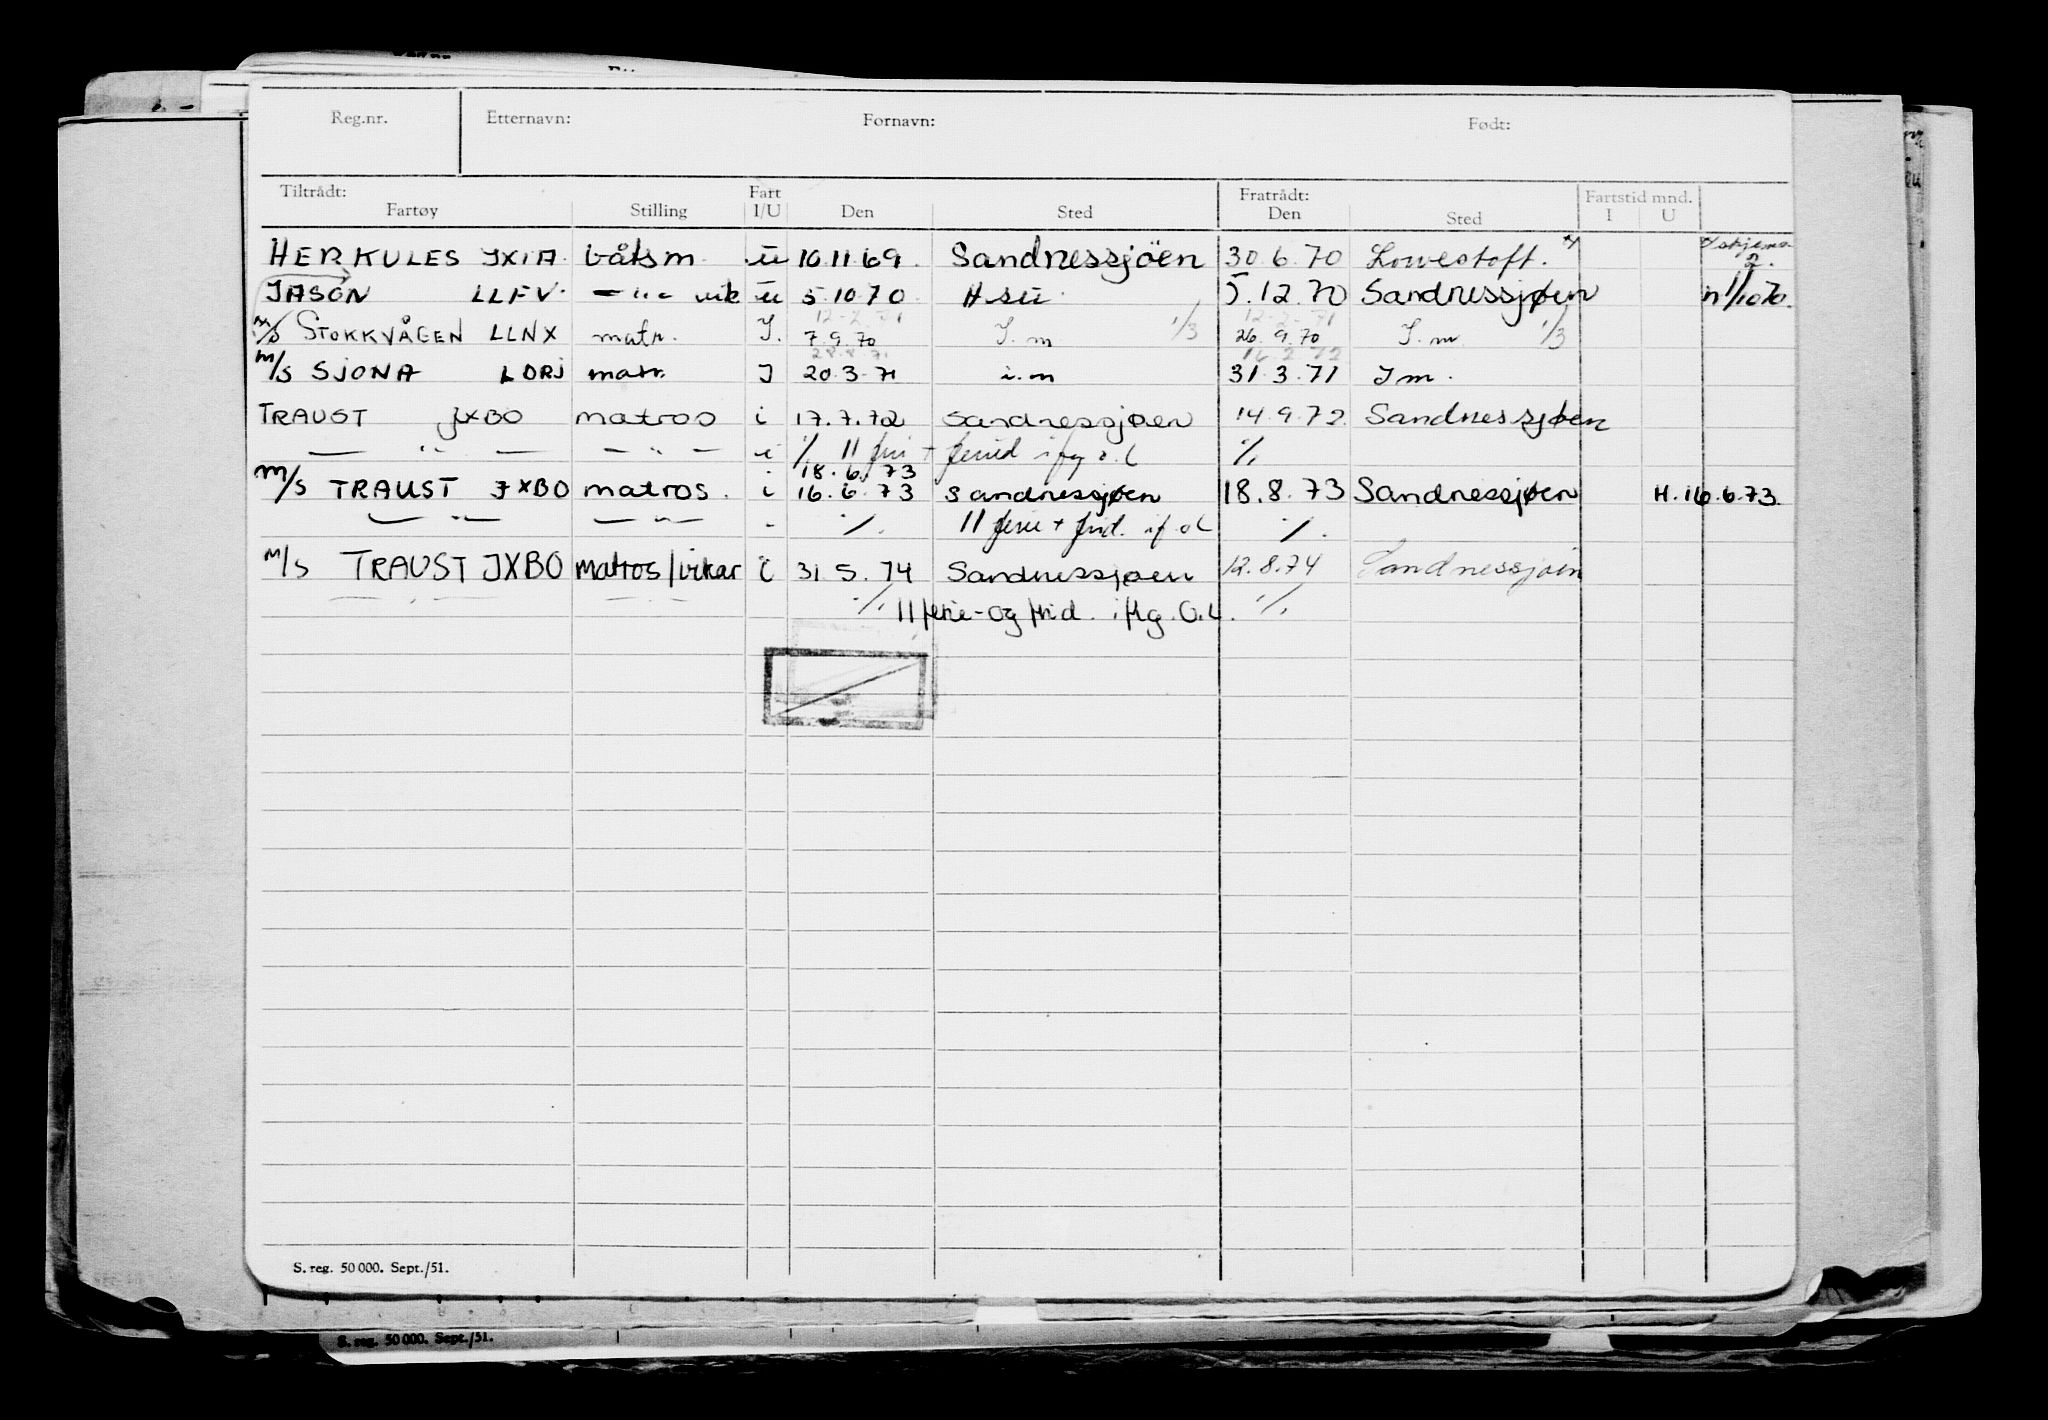 Reg.nr. Etternavn: Fornavn: Født:
Tiltrådt: Fart Fratrådt: Fartstid mnd.
Fartøy Stilling I/U Den Sted Den Sted I U
HERKULES JXIA båtsm. u 10.11.69 Sandnessjöen 30.6.70 Lowestoft. 2.
JASON LLFV. — " — vik u 5.10.70. H.sü 5.12.70 Sandnessjøen n 1/10 70.
12-2-71 12-2-71
m/s STOKKVÅGEN LLNX matr. I. 7.9.70 I.m 1/3 26.9.70 I.m 1/3
28.8.71 16.2.72
m/s SJONA LDRJ matr. I 20.3.71 i.m 31.3.71 Im.
TRAUST JXBO matros i 17.7.72 Sandnessjøen 14.9.72 Sandnessjøen
— " — — " — i % 11 %
18.6.73
m/s TRAUST JXBO matros. i 16.6.73 Sandnessjøen 18.8.73 Sandnessjøen H. 16.6.73.
— " — — " — - %. 11 ferie + %.
m/s TRAUST JXBO matros/vikar i 31.5.74 Sandnessjøen 12.8.74 Sandnessjøen
— " — — " — %. 11 ferie-og frid. iflg. O.L. %.
S. reg. 50 000. Sept./51.
S. reg. 50 000. Sept./51.